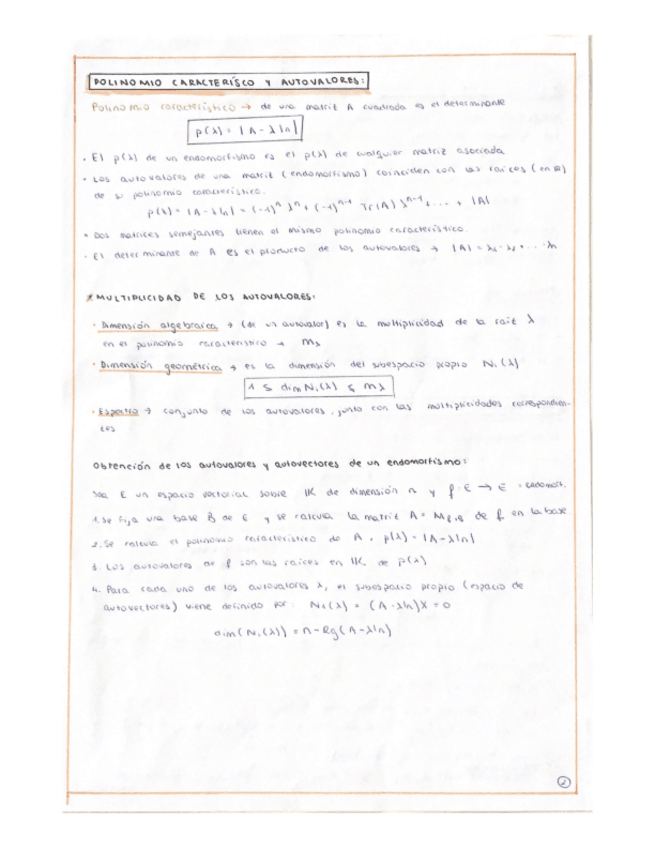 POLINOMIO CARACTERÍSCO Y AUTOVALORES:
Polinomio característico → de una matriz A cuadrada es el determinante
p(λ) = |A - λIn|
• El p(λ) de un endomorfismo es el p(λ) de cualquier matriz asociada
• Los autovalores de una matriz (endomorfismo) coinciden con las raíces (en IK)
de su polinomio característico.
p(λ) = |A - λIn| = (-1)ⁿ λⁿ + (-1)ⁿ⁻¹ Tr(A) λⁿ⁻¹ + .... + |A|
• Dos matrices semejantes tienen el mismo polinomio característico.
• El determinante de A es el producto de los autovalores → |A| = λ₁ · λ₂ · ... · λn
* MULTIPLICIDAD DE LOS AUTOVALORES:
• Dimensión algebraica → (de un autovalor) es la multiplicidad de la raíz λ
en el polinomio característico → mλ
• Dimensión geométrica → es la dimensión del subespacio propio N₁(λ)
1 ≤ dim N₁(λ) ≤ mλ
• Espectro → conjunto de los autovalores, junto con las multiplicidades correspondien-
tes
Obtención de los autovalores y autovectores de un endomorfismo:
Sea E un espacio vectorial sobre IK de dimensión n y f: E → E endomorf.
1. Se fija una base B de E y se calcula la matriz A = Mf,B de f en la base
2. Se calcula el polinomio característico de A, p(λ) = |A - λIn|
3. Los autovalores de f son las raíces en IK de p(λ)
4. Para cada uno de los autovalores λ, el subespacio propio (espacio de
autovectores) viene definido por: N₁(λ) = (A - λIn)X = 0
dim(N₁(λ)) = n - Rg(A - λIn)
2